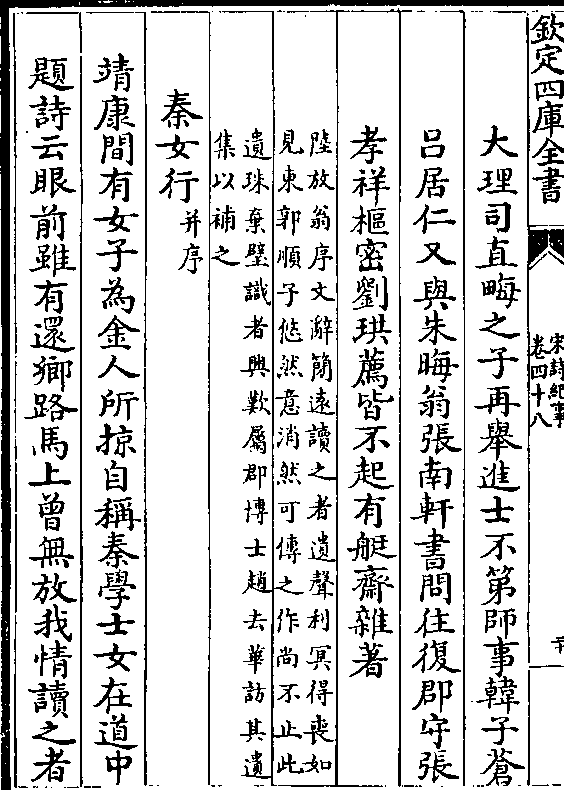 欽定四庫全書
宋詩紀事
卷四十八
大理司直畮之子再舉進士不第師事韓子蒼
呂居仁又與朱晦翁張南軒書問往復郡守張
孝祥樞密劉珙薦皆不起有艇齋雜著
陸放翁序文辭簡遠讀之者遺聲利冥得喪如
見東郭順子悠然意消然可傳之作尚不止此
遺珠棄璧識者興歎屬郡博士趙去華訪其遺
集以補之
秦女行并序
靖康間有女子為金人所掠自稱秦學士女在道中
題詩云眼前雖有還鄉路馬上曾無放我情讀之者